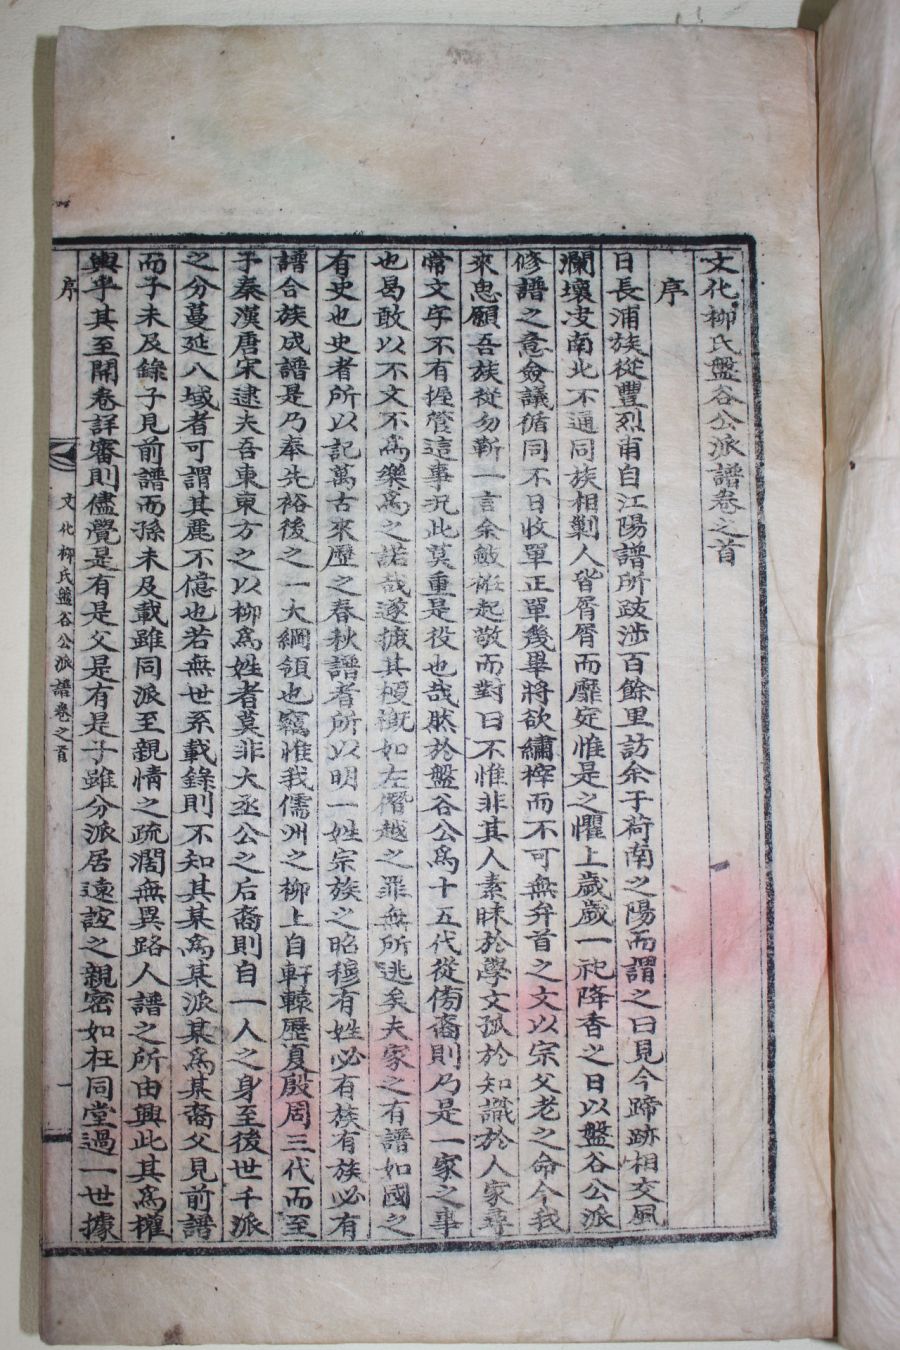 文化柳氏盤谷公派譜卷之首
序
日長浦族從豐烈甫自江陽譜所跋涉百餘里訪余于荷南之陽而謂之曰見今蹄跡相交風
瀾壞沒南北不通同族相剿人皆屑屑而靡定惟是之懼上歲歲一祀降香之日以盤谷公派
修譜之意僉議循同不日收單正單幾畢將欲繡榟而不可無弁首之文以宗父老之命今我
來思願吾族從勿靳一言余斂袵起敬而對曰不惟非其人素昧於學文孤於知識於人家尋
常文字不有握管這事况此莫重是役也哉然於盤谷公爲十五代從傍裔則乃是一家之事
也曷敢以不文不爲樂爲之諾哉遂據其梗槪如左僭越之罪無所逃矣夫家之有譜如國之
有史也史者所以記萬古來歷之春秋譜者所以明一姓宗族之昭穆有姓必有族有族必有
譜合族成譜是乃奉先裕後之一大綱領也竊惟我儒州之柳上自軒轅歷夏殷周三代而至
于秦漢唐宋逮夫吾東東方之以柳爲姓者莫非大丞公之后裔則自一人之身至後世千派
之分蔓延八域者可謂其麗不億也若無世系載錄則不知其某爲某派某爲某裔父見前譜
而子未及錄子見前譜而孫未及載雖同派至親情之疏濶無異路人譜之所由興此其爲權
輿乎其至開卷詳審則儘覺是有是父是有是子雖分派居遠誼之親密如在同堂過一世據
序 文化柳氏盤谷公派譜卷之首 一